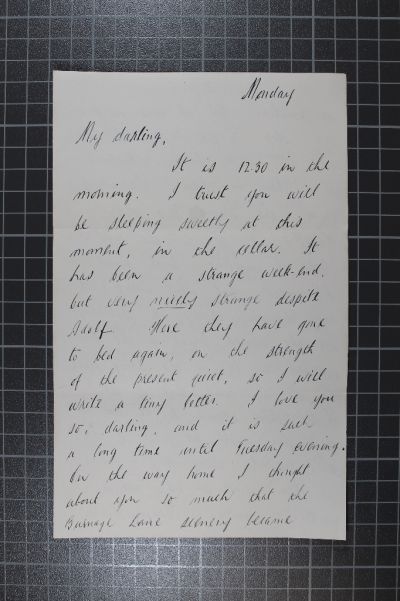 Monday
My darling,
It is 12.30 in the
morning. I trust you will
be sleeping sweetly at this
moment, in the cellar. It
has been a strange week-end.
but very nicely strange despite
Adolf. Here they have gone
to bed again, on the strength
of the present quiet, so I will
write a tiny letter. I love you
so, darling, and it is such
a long time until Tuesday evening.
On the way home I thought
about you so much that the
Burnage Lane scenery became